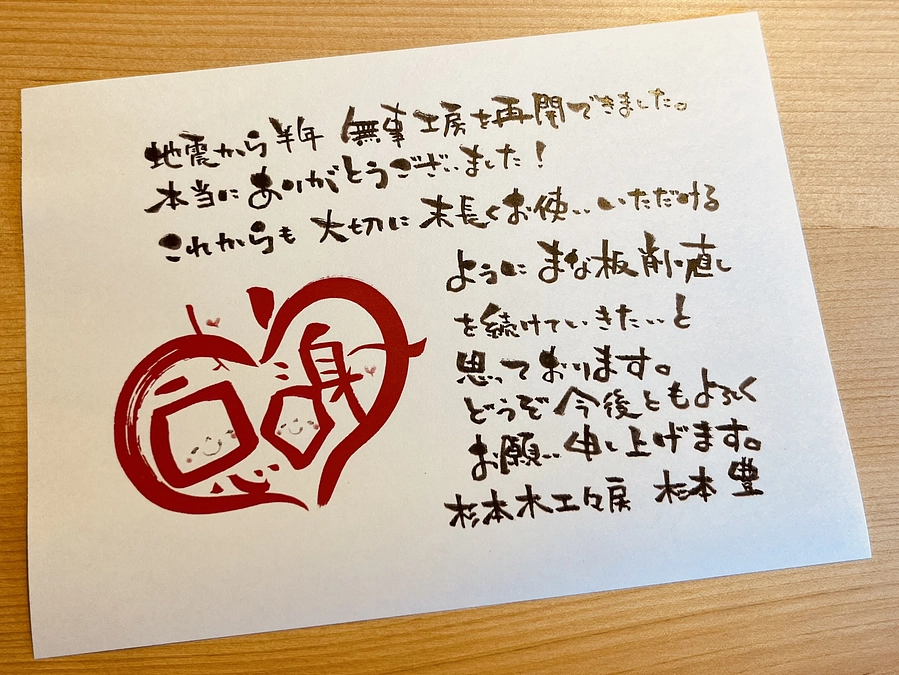 地震から半年 無事工房を再開できました。
本当にありがとうございました!
これからも 大切に 末長くお使いいただける
ように まな板削り直し
を続けていきたいと
思っております。
どうぞ今後ともよろしく
お願い申し上げます。
杉本木工々房 杉本 豊
感謝